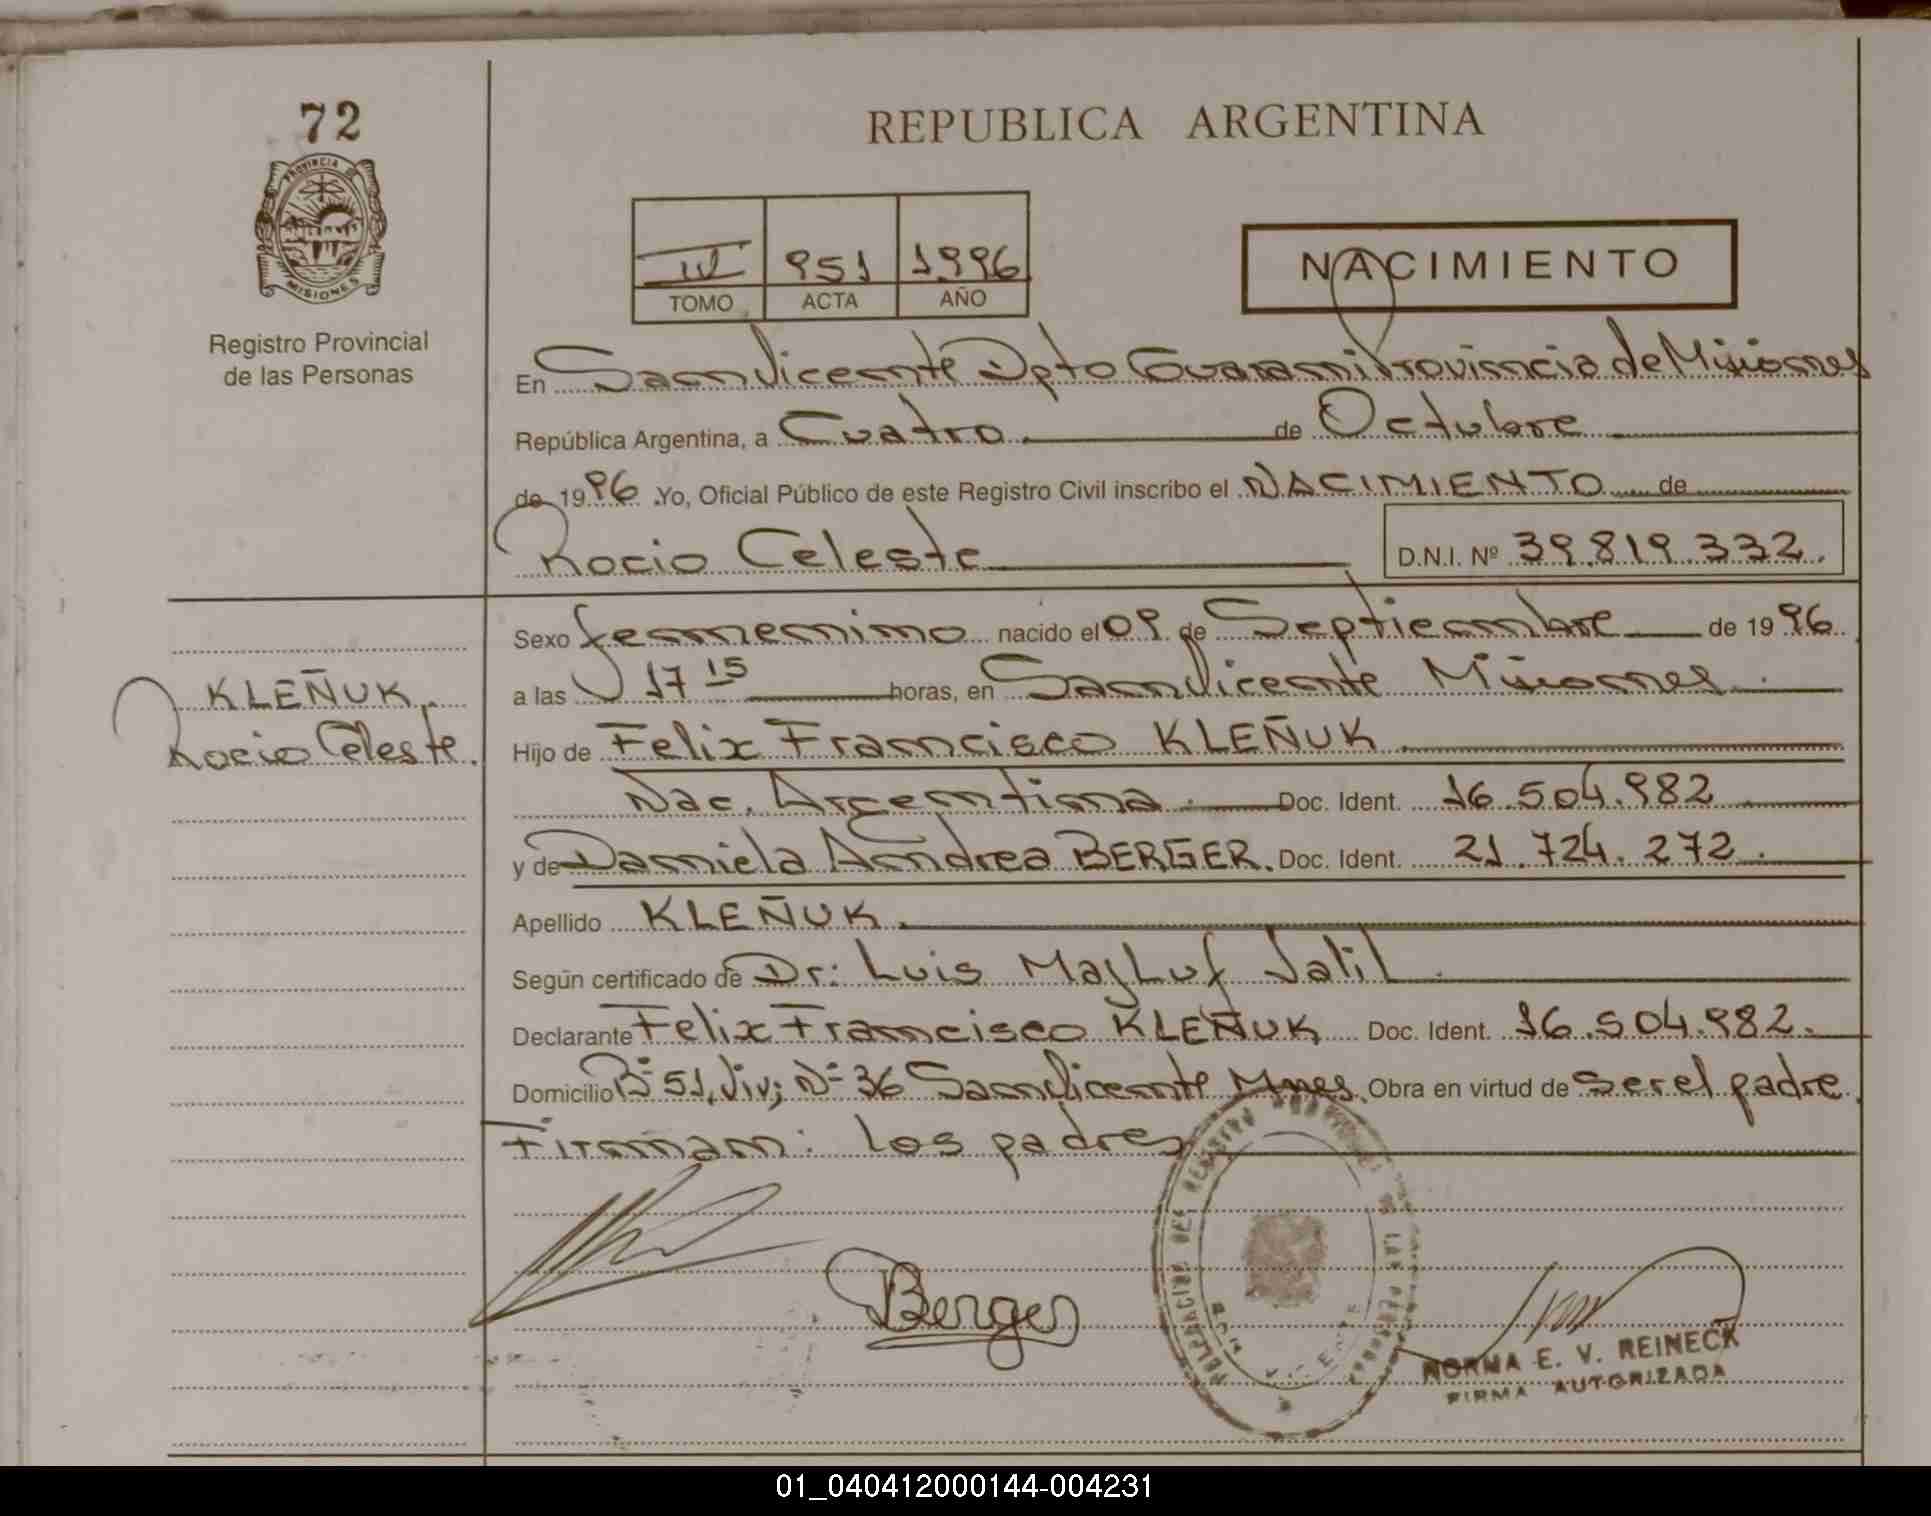 72
PROVINCIA DE
MISIONES
Registro Provincial
de las Personas
REPUBLICA ARGENTINA
III 951 1996
TOMO ACTA AÑO
NACIMIENTO
En San Vicente Dpto Guarani Provincia de Misiones
República Argentina, a Cuatro de Octubre
de 1996 .Yo, Oficial Público de este Registro Civil inscribo el NACIMIENTO de
Rocio Celeste D.N.I. Nº 39.819.332.
Sexo femenino nacido el 09 de Septiembre de 1996
a las 17 15 horas, en San Vicente Misiones
KLEÑUK
Rocio Celeste.
Hijo de Felix Francisco KLEÑUK
Nac. Argentina. Doc. Ident. 16.504.982
y de Daniela Andrea BERGER. Doc. Ident. 21.724.272.
Apellido KLEÑUK.
Según certificado de Dr: Luis Majluf Jalil
Declarante Felix Francisco KLEÑUK Doc. Ident. 16.504.982.
Domicilio Bº 51, Viv; Nº 36 San Vicente Mnes. Obra en virtud de ser el padre
Firman: los padres
Berger
DELEGACION DEL REGISTRO PROVINCIAL DE LAS PERSONAS
SAN VICENTE
NORMA E. V. REINECK
FIRMA AUTORIZADA
01_040412000144-004231